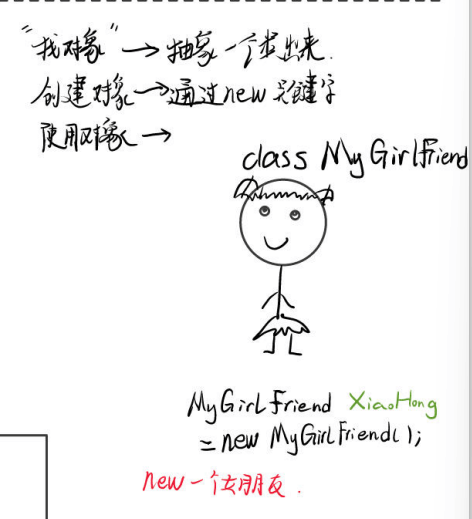 “找对象” → 抽象一个类出来.
创建对象 → 通过new 关键字
使用对象 →
class MyGirlFriend
MyGirlFriend XiaoHong
= new MyGirlFriend();
new一个女朋友.